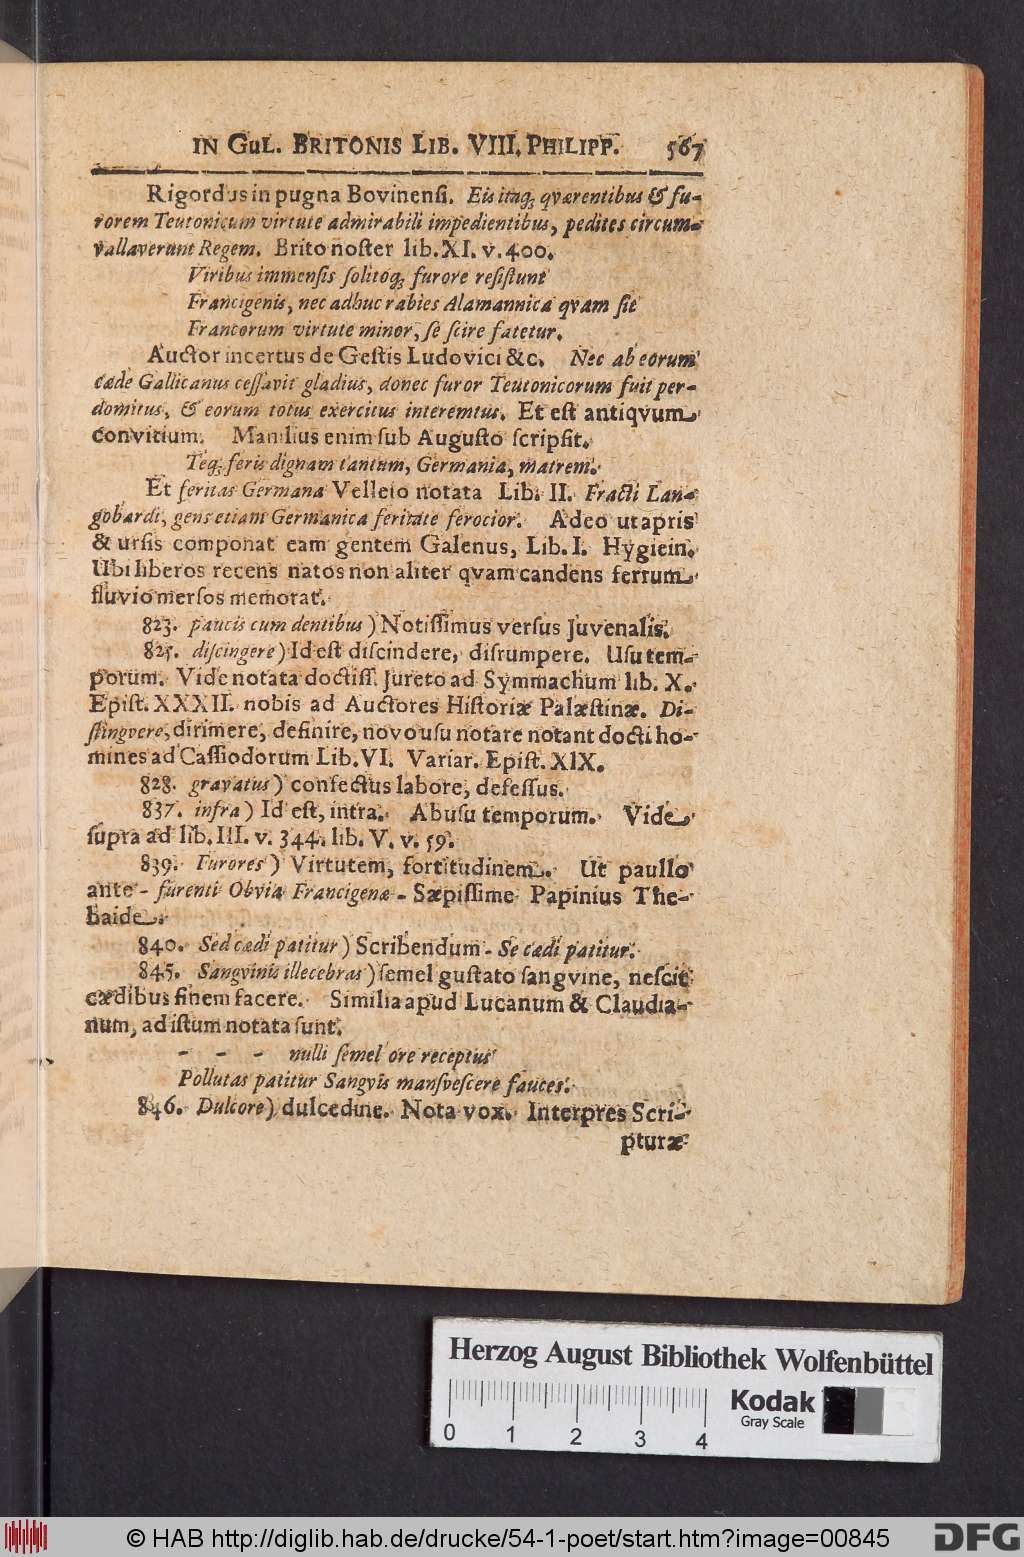 IN GuL. BRITONIS LIB. VIII. PHILIPP. 567
Rigordus in pugna Bovinensi. Eis itaq; qværentibus & fu-
rorem Teutonicum virtute admirabili impedientibus, pedites circum-
vallaverunt Regem. Brito noster lib. XI. v. 400.
Viribus immensis solitoq; furore resistunt
Francigenis, nec adhuc rabies Alamannica qvam sit
Francorum virtute minor, se scire fatetur.
Auctor incertus de Gestis Ludovici &c. Nec ab eorum
cæde Gallicanus cessavit gladius, donec furor Teutonicorum fuit per-
domitus, & eorum totus exercitus interemtus. Et est antiqvum
convitium. Manilius enim sub Augusto scripsit.
Teq; feris dignam tantum, Germania, matrem.
Et feritas Germana Velleio notata Lib. II. Fracti Lan-
gobardi, gens etiam Germanica feritate ferocior. Adeo ut apris
& ursis componat eam gentem Galenus, Lib. I. Hygiein.
Ubi liberos recens natos non aliter qvam candens ferrum
fluvio mersos memorat.
823. paucis cum dentibus) Notissimus versus Juvenalis.
825. discingere) Id est discindere, disrumpere. Usu tem-
porum. Vide notata doctiss. Jureto ad Symmachum lib. X.
Epist. XXXII. nobis ad Auctores Historiæ Palæstinæ. Di-
stingvere, dirimere, definire, novo usu notare notant docti ho-
mines ad Cassiodorum Lib. VI. Variar. Epist. XIX.
828. gravatus) confectus labore, defessus.
837. infra) Id est, intra. Abusu temporum. Vide
supra ad lib. III. v. 344. lib. V. v. 59.
839. Furores) Virtutem, fortitudinem. Ut paullo
ante - furenti Obvia Francigenæ - Sæpissime Papinius The-
baide.
840. Sed cædi patitur) Scribendum - Se cædi patitur.
845. Sangvinis illecebras) semel gustato sangvine, nescit
cædibus finem facere. Similia apud Lucanum & Claudia-
num, ad istum notata sunt.
- - - nulli semel ore receptus
Pollutas patitur Sangvis mansvescere fauces.
846. Dulcore) dulcedine. Nota vox. Interpres Scri-
pturæ
Herzog August Bibliothek Wolfenbüttel
Kodak
Gray Scale
0 1 2 3 4
© HAB http://diglib.hab.de/drucke/54-1-poet/start.htm?image=00845
DFG